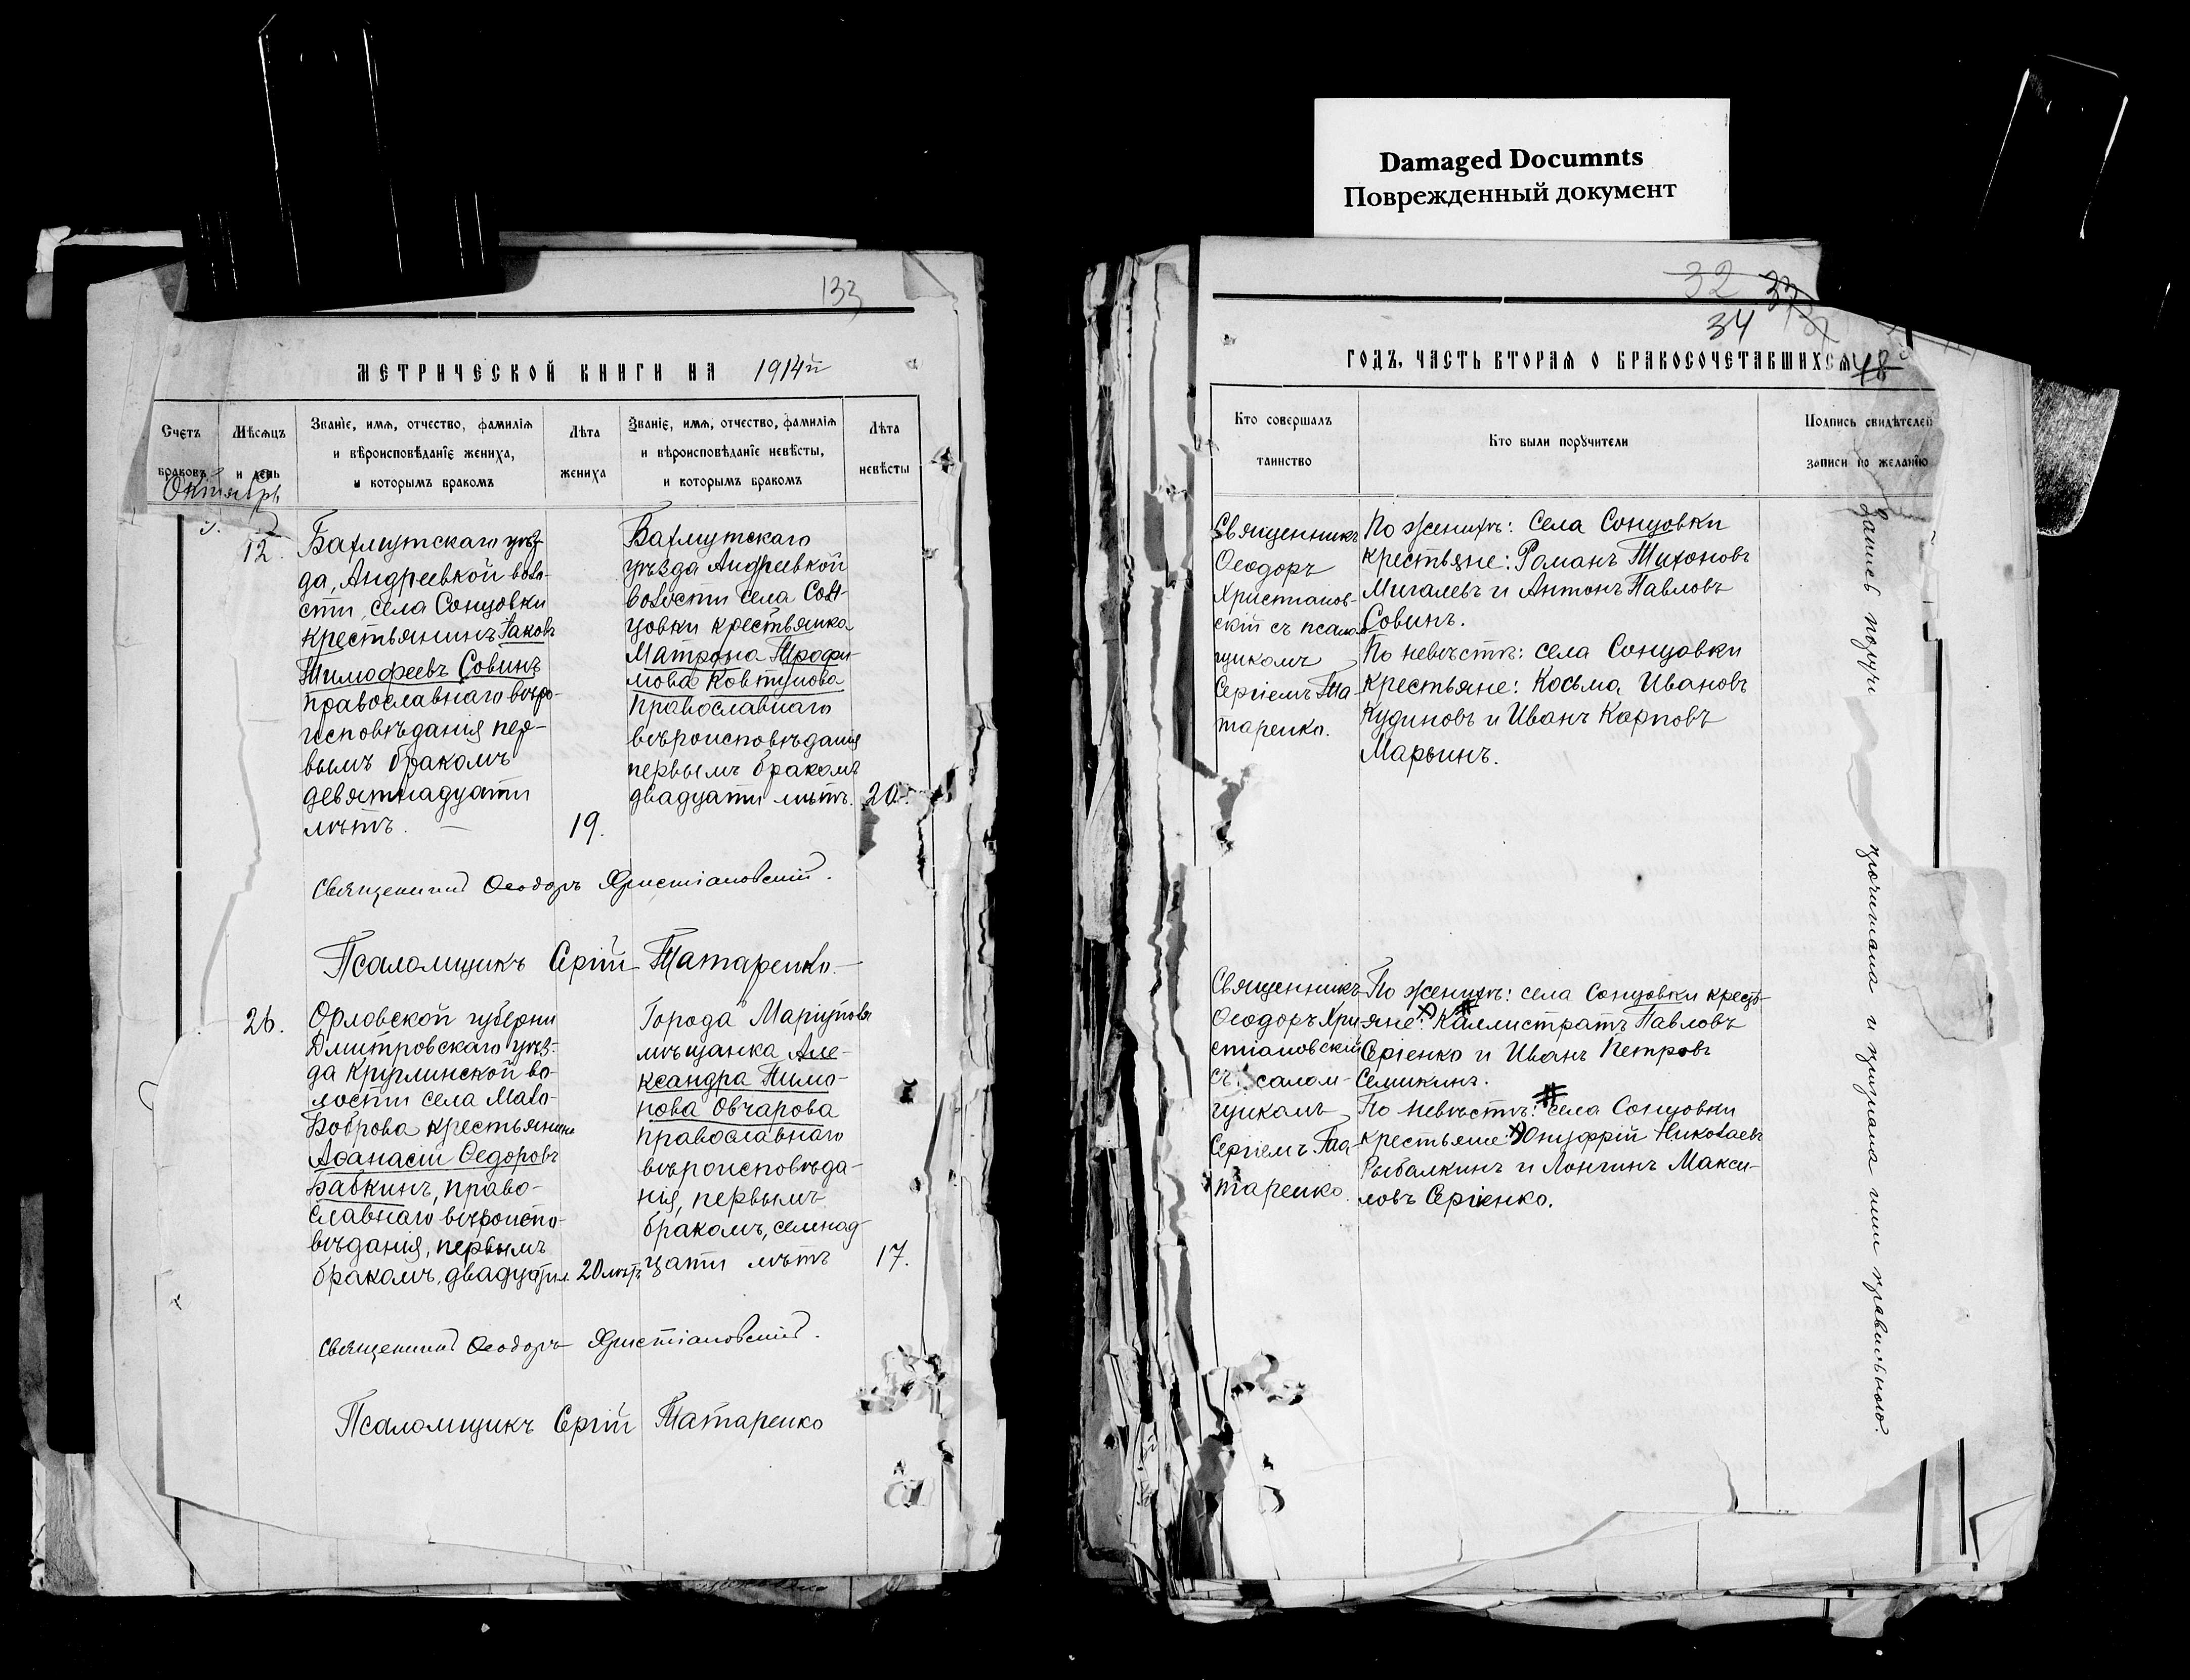 Damaged Documnts
Поврежденный документ
133
МЕТРИЧЕСКОЙ КНИГИ НА 1914й
Счетъ браковъ
Мѣсяцъ и день
Званіе, имя, отчество, фамилія
и вѣроисповѣданіе жениха,
и которымъ бракомъ
Лѣта
жениха
Званіе, имя, отчество, фамилія
и вѣроисповѣданіе невѣсты,
и которымъ бракомъ
Лѣта
невѣсты
Октябрь
12.
Бахмутскаго уѣз-
да, Андреевкой воло-
сти, села Сонцовки
крестьянинъ Іаковъ
Тимофеевъ Совинъ
православнаго вѣро-
исповѣданія пер-
вымъ бракомъ
девятнадцати
лѣтъ.
19.
Бахмутскаго
уѣзда Андреевкой
волости села Сон-
цовки крестьянка
Матрона Трофи-
мова Ковтунова
православнаго
вѣроисповѣданія
первымъ бракомъ
двадцати лѣтъ.
20.
Священникъ Ѳеодоръ Христіановскій.
Псаломщикъ Сергій Татаренко.
26.
Орловской губерни
Дмитровскаго уѣз-
да Круглинской во-
лости села Мало-
Боброва крестьянинъ
Аѳанасій Ѳедоровъ
Бабкинъ, право-
славнаго вѣроиспо-
вѣданія, первымъ
бракомъ, двадцати л.
20 лѣтъ
Города Маріуполя
мѣщанка Але-
ксандра Пимо-
нова Овчарова
православнаго
вѣроисповѣда-
нія, первымъ
бракомъ, семнад-
цати лѣтъ
17.
Священникъ Ѳеодоръ Христіановскій.
Псаломщикъ Сергій Татаренко
32
34
ГОДЪ, ЧАСТЬ ВТОРАЯ О БРАКОСОЧЕТАВШИХСЯ
48
Кто совершалъ
таинство
Кто были поручители
Подпись свидѣтелей
записи по желанію
Священникъ
Ѳеодоръ
Христіанов-
скій съ псалом-
щикомъ
Сергіемъ Та-
таренко.
По женихѣ: села Сонцовки
крестьяне: Романъ Тихоновъ
Мигалевъ и Антонъ Павловъ
Совинъ.
По невѣстѣ: села Сонцовки
крестьяне: Косьма Ивановъ
Кудиновъ и Иванъ Карповъ
Марьинъ.
Священникъ
Ѳеодоръ Хри-
стіановскій
съ псалом-
щикомъ
Сергіемъ Та-
таренко.
По женихѣ: села Сонцовки кресть-
яне: Каллистратъ Павловъ
Сергіенко и Иванъ Петровъ
Семикинъ.
По невѣстѣ: села Сонцовки
крестьяне: Онуфрій Николаевъ
Рыбалкинъ и Лонгинъ Макси-
мовъ Сергіенко.
Запись поручи прочитана и признана ими правильною.